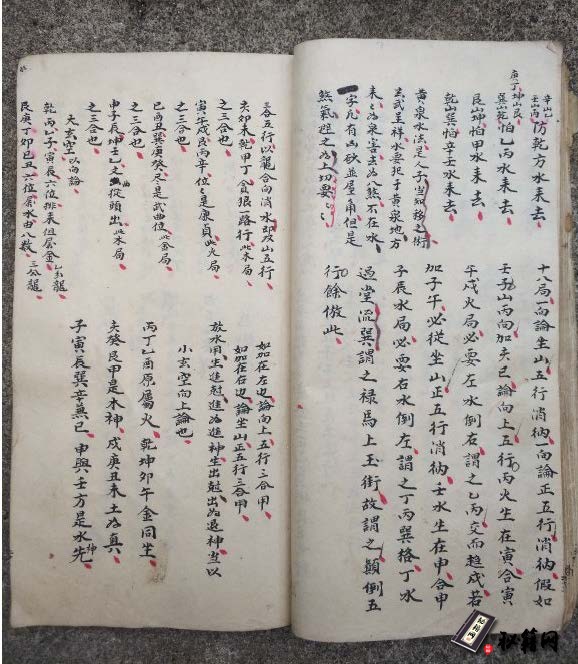 辛山乙
壬山丙防乾方水来去
庚丁坤山艮
巽山乾怕乙丙水来去
艮山坤怕甲水来去
乾山巽怕辛壬水来去
黄泉水法是人子当知移之衙
玄武呈祥水要犯于黄泉地方
来之為泉害去為八煞不在水
一字凢有山砍並屋角但是
煞氣避之為上切要之
十局一向論坐山五行消纳一向論正五行消纳假如
壬子山丙向加亥巳論向上五行丙火生在寅合寅
午戌火局必要左水倒右謂之乙丙交而趋戌若
加子午必從坐山正五行消纳壬水生在申合申
子辰水局必要右水倒左謂之丁丙巽格丁水
過堂流巽謂之禄馬上玉街故謂之顛倒五
行餘倣此
三合五行以龍合向消水即及山五行
亥卯未乾甲丁貪狼一路行此木局
之三合也
寅午戌艮丙辛位之是廉貞此火局
之三合也
巳酉丑巽庚癸尽是武曲位此金局
之三合也
申子辰坤壬乙文曲從頭出此水局
之三合也
大玄空以向論
乾丙乙子寅辰六位排来但屬金乙分龍
艮庚丁卯巳丑六位屬水由八数三公龍
如加在左边論向上五行三合甲
如加在右边論坐山正五行三合甲
放水用生進尅進為進神生出尅出為退神当以
小玄空向上論也
丙丁乙酉原屬火乾坤卯午金同坐
亥癸艮甲是木神戌庚丑未土為真
子寅辰巽辛兼巳申與壬方是水神先
秘籍网